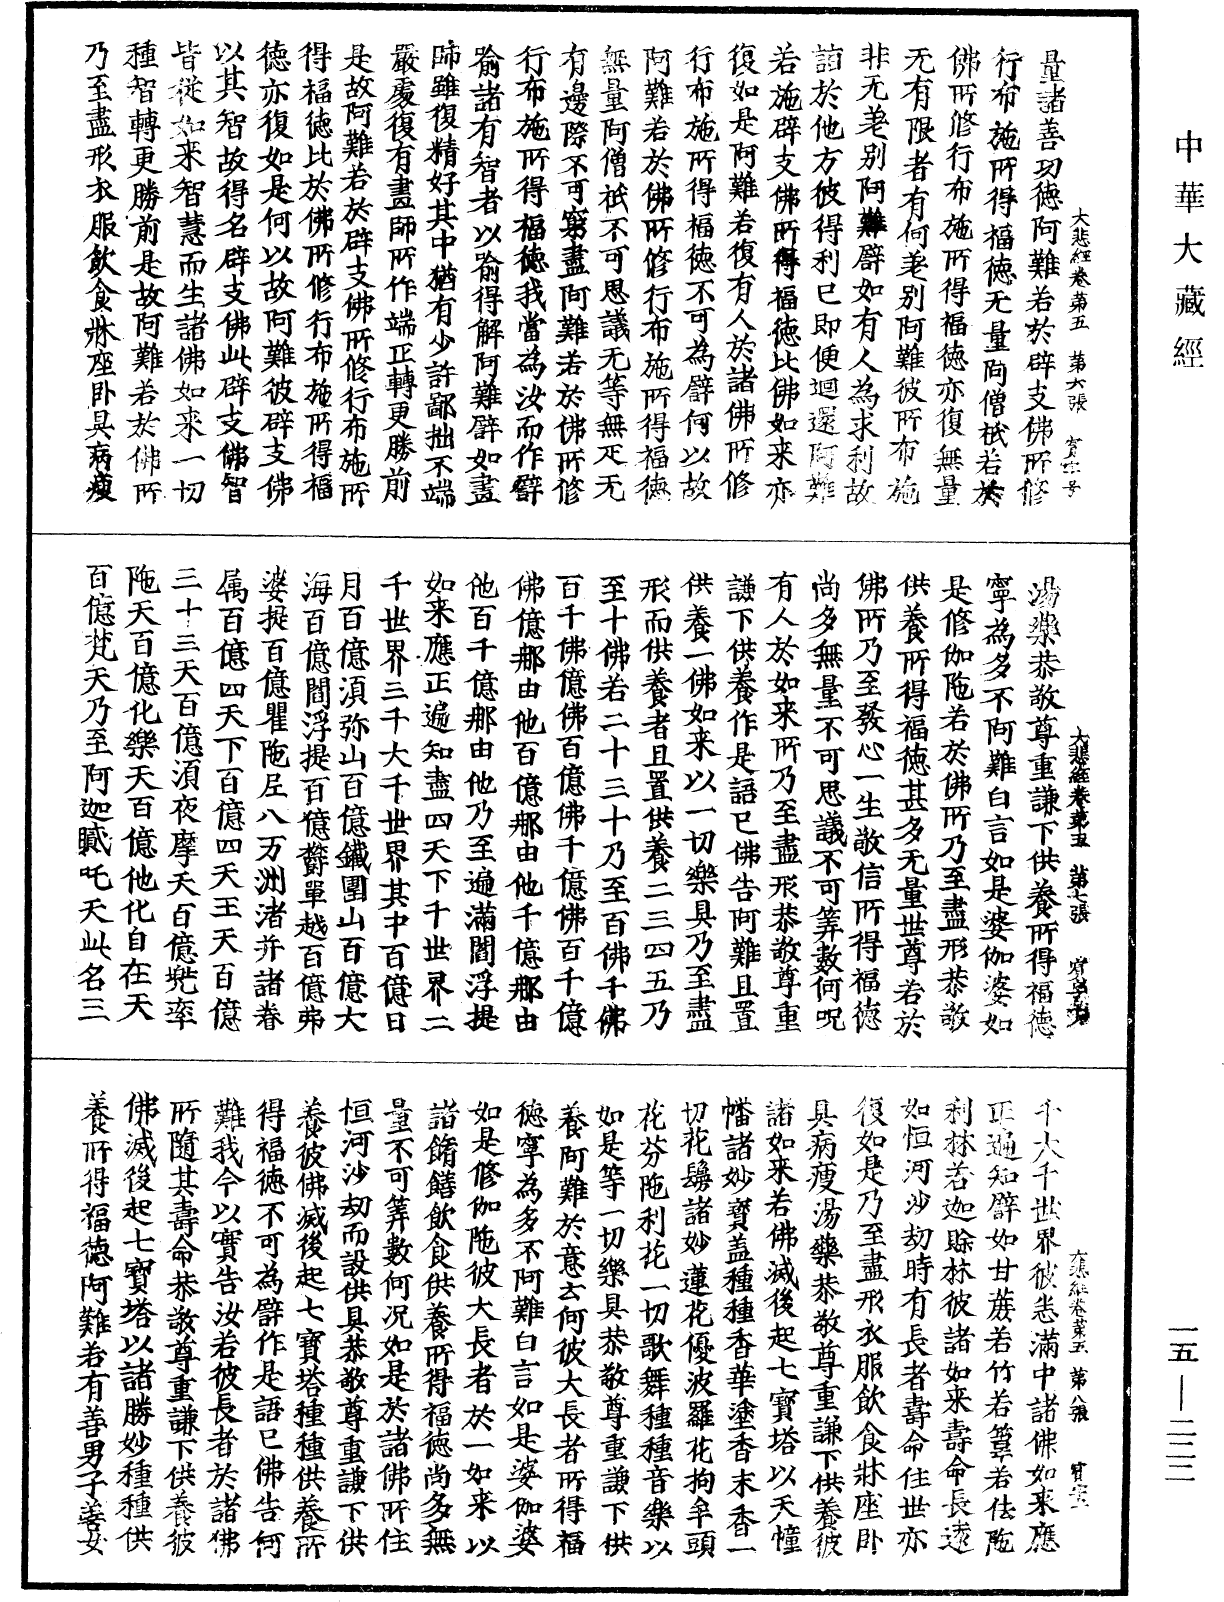 中華大藏經
大悲經卷第五　第六張
量諸善功德阿難若於辟支佛所修
行布施所得福德无量阿僧祇若於
佛所修行布施所得福德亦復無量
无有限者有何差别阿難彼所布施
非无差别阿難譬如有人為求利故
詣於他方彼得利已即便迴還阿難
若施辟支佛所得福德比佛如来亦
復如是阿難若復有人於諸佛所修
行布施所得福德不可為譬何以故
阿難若於佛所修行布施所得福德
無量阿僧祇不可思議无等無疋无
有邊際不可窮盡阿難若於佛所修
行布施所得福德我當為汝而作譬
喻諸有智者以喻得解阿難譬如畫
師雖復精好其中猶有少許鄙拙不端
嚴處復有畫師所作端正轉更勝前
是故阿難若於辟支佛所修行布施所
得福德比於佛所修行布施所得福
德亦復如是何以故阿難彼辟支佛
以其智故得名辟支佛此辟支佛智
皆從如来智慧而生諸佛如来一切
種智轉更勝前是故阿難若於佛所
乃至盡形衣服飲食牀座卧具病瘦
大悲經卷第五　第七張
湯藥恭敬尊重謙下供養所得福德
寧為多不阿難白言如是婆伽婆如
是修伽陁若於佛所乃至盡形恭敬
供養所得福德甚多无量世尊若於
佛所乃至發心一生敬信所得福德
尚多無量不可思議不可筭數何况
有人於如来所乃至盡形恭敬尊重
謙下供養作是語已佛告阿難且置
供養一佛如来以一切樂具乃至盡
形而供養者且置供養二三四五乃
至十佛若二十三十乃至百佛千佛
百千佛億佛百億佛千億佛百千億
佛億那由他百億那由他千億那由
他百千億那由他乃至遍滿閻浮提
如来應正遍知盡四天下千世界二
千世界三千大千世界其中百億日
月百億須弥山百億鐵圍山百億大
海百億閻浮提百億欝單越百億弗
婆提百億瞿陁尼八万洲渚并諸眷
属百億四天下百億四天王天百億
三十三天百億須夜摩天百億兜率
陁天百億化樂天百億他化自在天
百億梵天乃至阿迦膩吒天此名三
大悲經卷第五　第八張
千大千世界彼悉滿中諸佛如来應
正遍知譬如甘蔗若竹若葦若佉陁
利林若迦賒林彼諸如来壽命長遠
如恒河沙劫時有長者壽命住世亦
復如是乃至盡形衣服飲食牀座卧
具病瘦湯藥恭敬尊重謙下供養彼
諸如来若佛滅後起七寶塔以天幢
幡諸妙寶盖種種香華塗香末香一
切花鬘諸妙蓮花優波羅花拘牟頭
花芬陁利花一切歌舞種種音樂以
如是等一切樂具恭敬尊重謙下供
養阿難於意云何彼大長者所得福
德寧為多不阿難白言如是婆伽婆
如是修伽陁彼大長者於一如来以
諸餚饍飲食供養所得福德尚多無
量不可筭數何况如是於諸佛所住
恒河沙劫而設供具恭敬尊重謙下供
養彼佛滅後起七寶塔種種供養所
得福德不可為譬作是語已佛告阿
難我今以實告汝若彼長者於諸佛
所隨其壽命恭敬尊重謙下供養彼
佛滅後起七寶塔以諸勝妙種種供
養所得福德阿難若有善男子善女
一五—二二二